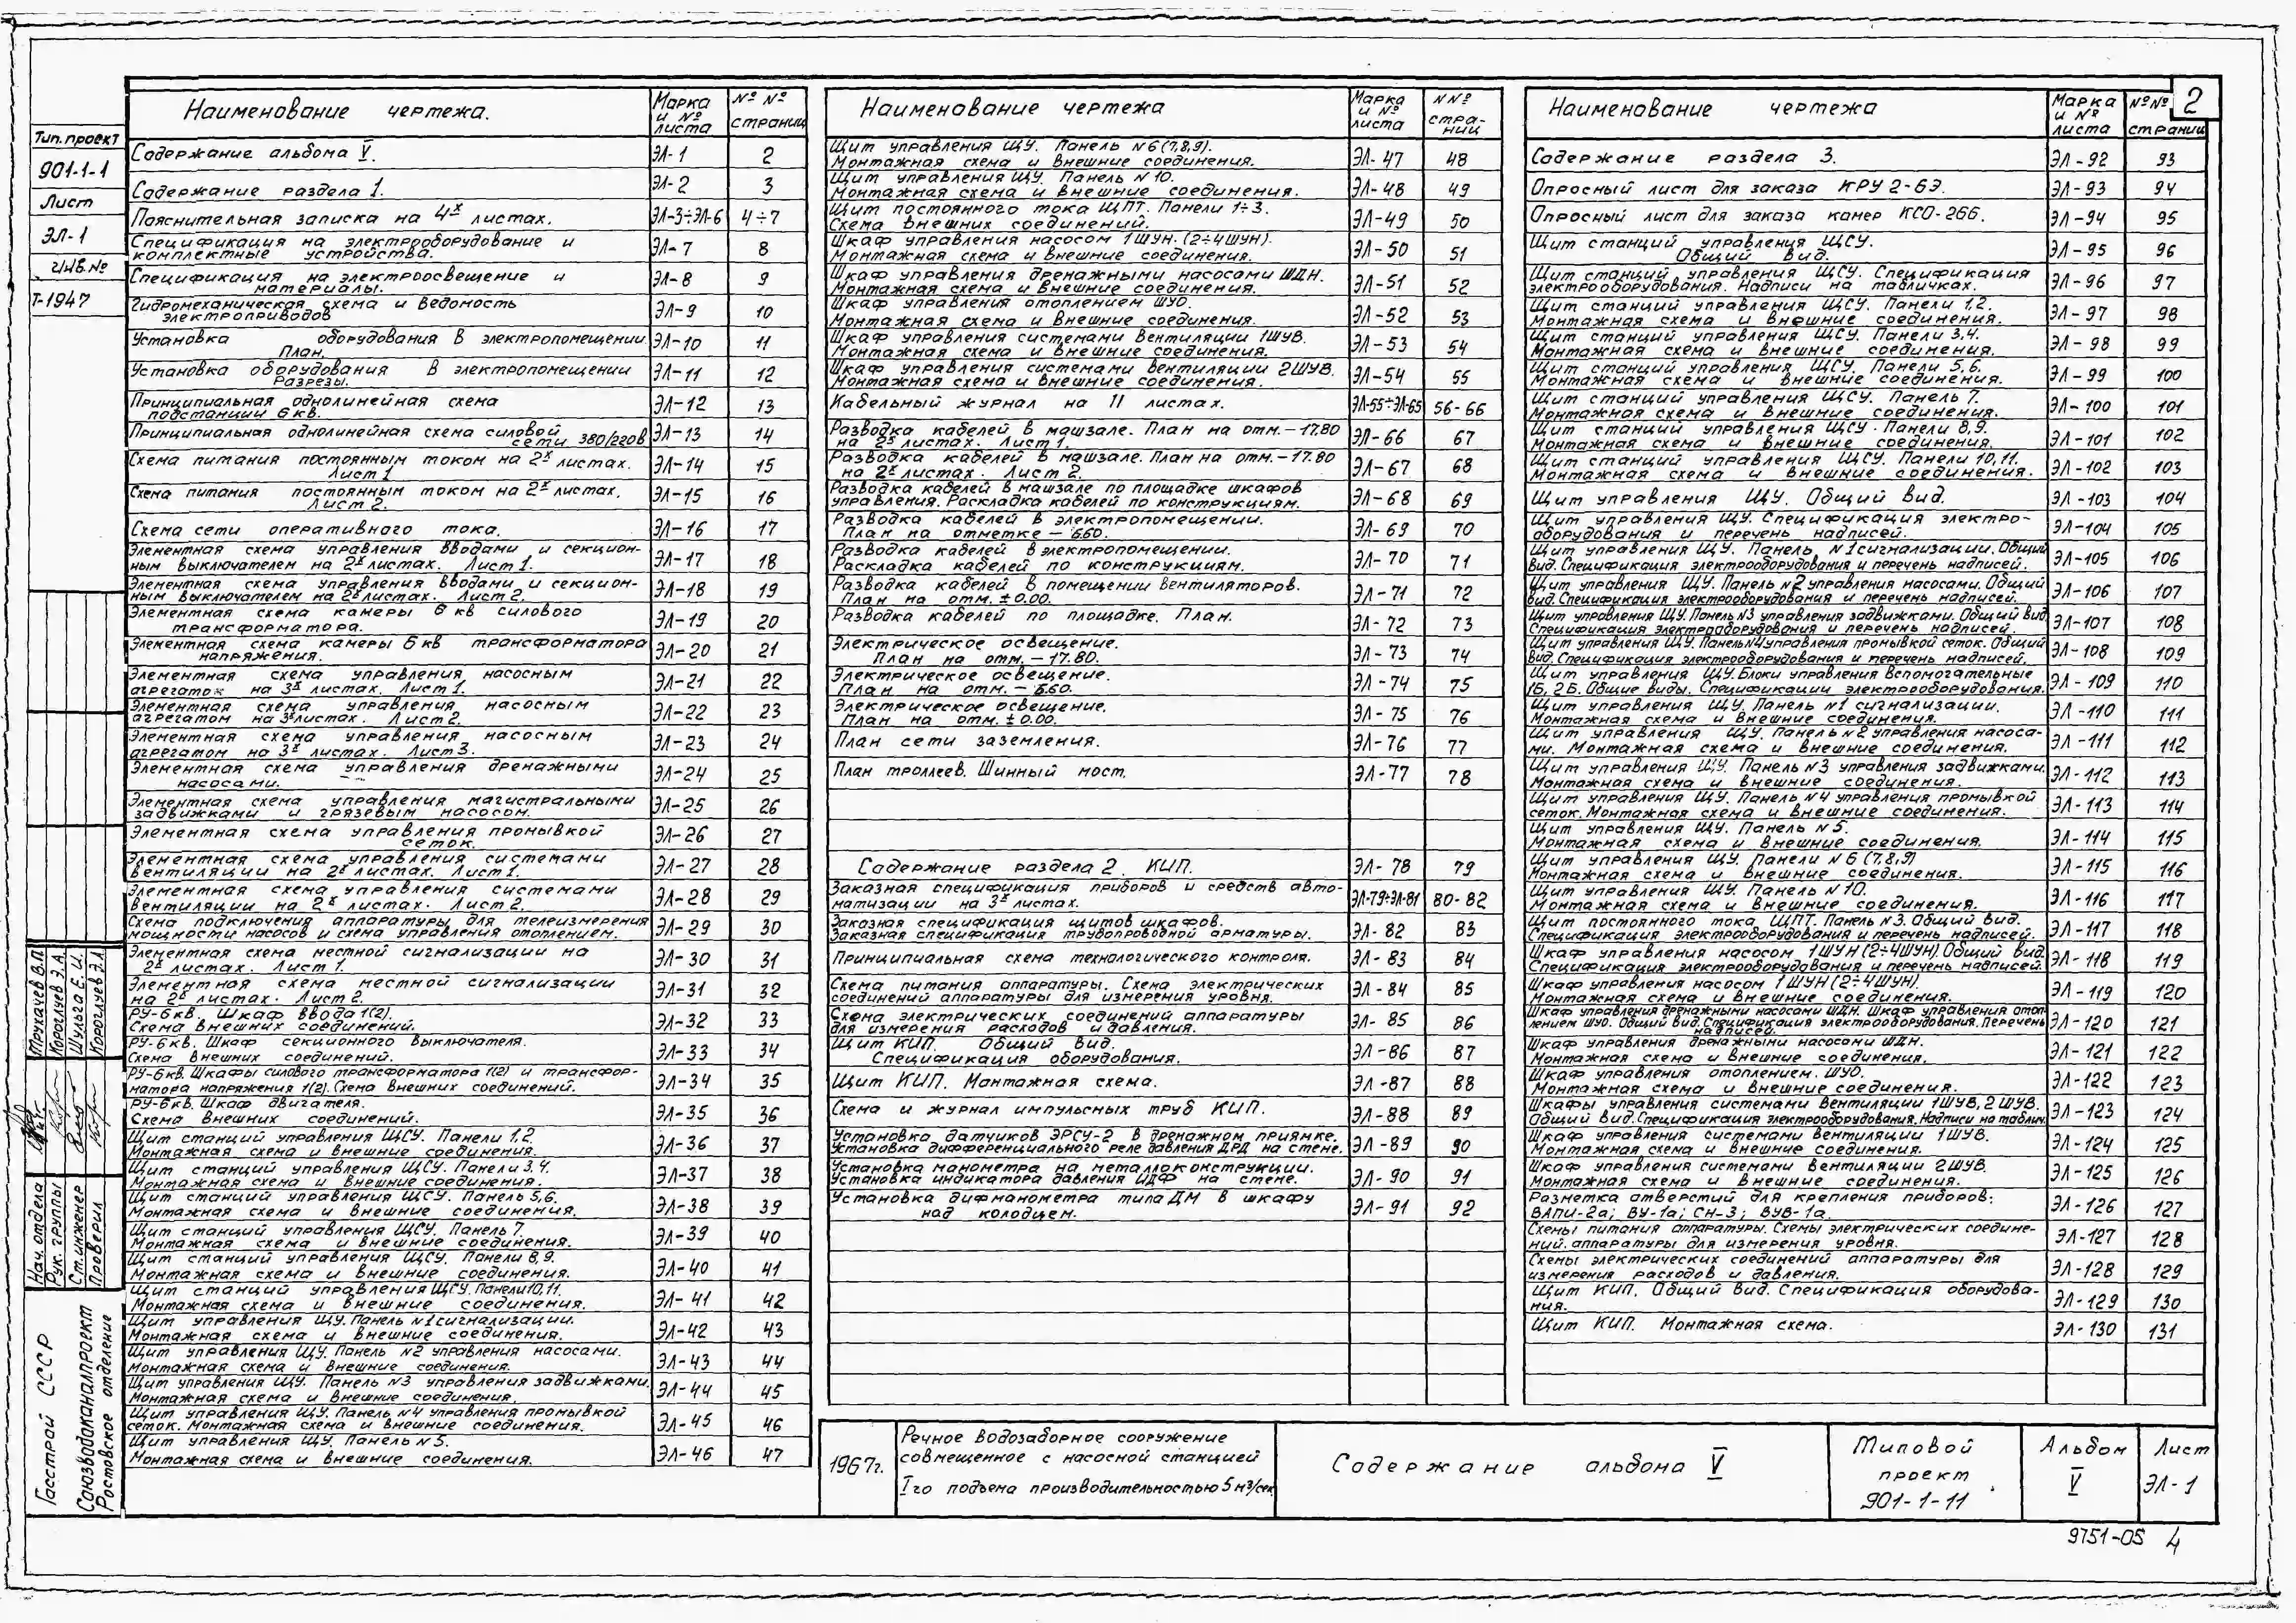 2
Тип. проект
901-1-1
Лист
ЭЛ-1
Инв. №
Т-1947
Наименование чертежа. Марка и № листа №№ страниц
Содержание альбома V. ЭЛ-1 2
Содержание раздела 1. ЭЛ-2 3
Пояснительная записка на 4х листах. ЭЛ-3÷ЭЛ-6 4÷7
Спецификация на электрооборудование и
комплектные устройства. ЭЛ-7 8
Спецификация на электроосвещение и
материалы. ЭЛ-8 9
Гидромеханическая схема и ведомость
электроприводов ЭЛ-9 10
Установка оборудования в электропомещении.
План. ЭЛ-10 11
Установка оборудования в электропомещении
Разрезы. ЭЛ-11 12
Принципиальная однолинейная схема
подстанции 6кв. ЭЛ-12 13
Принципиальная однолинейная схема силовой
сети 380/220в ЭЛ-13 14
Схема питания постоянным током на 2х листах.
Лист 1 ЭЛ-14 15
Схема питания постоянным током на 2х листах.
Лист 2. ЭЛ-15 16
Схема сети оперативного тока. ЭЛ-16 17
Элементная схема управления вводами и секцион-
ным выключателем на 2х листах. Лист 1. ЭЛ-17 18
Элементная схема управления вводами и секцион-
ным выключателем на 2х листах. Лист 2. ЭЛ-18 19
Элементная схема камеры 6 кв силового
трансформатора. ЭЛ-19 20
Элементная схема камеры 6кв трансформатора
напряжения. ЭЛ-20 21
Элементная схема управления насосным
агрегатом на 3х листах. Лист 1. ЭЛ-21 22
Элементная схема управления насосным
агрегатом на 3х листах. Лист 2. ЭЛ-22 23
Элементная схема управления насосным
агрегатом на 3х листах. Лист 3. ЭЛ-23 24
Элементная схема управления дренажными
насосами. ЭЛ-24 25
Элементная схема управления магистральными
задвижками и грязевым насосом. ЭЛ-25 26
Элементная схема управления промывкой
сеток. ЭЛ-26 27
Элементная схема управления системами
вентиляции на 2х листах. Лист 1. ЭЛ-27 28
Элементная схема управления системами
вентиляции на 2х листах. Лист 2. ЭЛ-28 29
Схема подключения аппаратуры для телеизмерения
мощности насосов и схема управления отоплением. ЭЛ-29 30
Элементная схема местной сигнализации на
2х листах. Лист 1. ЭЛ-30 31
Элементная схема местной сигнализации
на 2х листах. Лист 2. ЭЛ-31 32
РУ-6кв. Шкаф ввода 1(2).
Схема внешних соединений. ЭЛ-32 33
РУ-6кв. Шкаф секционного выключателя.
Схема внешних соединений. ЭЛ-33 34
РУ-6кв. Шкафы силового трансформатора 1(2) и трансфор-
матора напряжения 1(2). Схема внешних соединений. ЭЛ-34 35
РУ-6кв. Шкаф двигателя.
Схема внешних соединений. ЭЛ-35 36
Щит станций управления ЩСУ. Панели 1,2.
Монтажная схема и внешние соединения. ЭЛ-36 37
Щит станций управления ЩСУ. Панели 3,4.
Монтажная схема и внешние соединения. ЭЛ-37 38
Щит станций управления ЩСУ. Панель 5,6.
Монтажная схема и внешние соединения. ЭЛ-38 39
Щит станций управления ЩСУ. Панель 7.
Монтажная схема и внешние соединения. ЭЛ-39 40
Щит станций управления ЩСУ. Панели 8,9.
Монтажная схема и внешние соединения. ЭЛ-40 41
Щит станций управления ЩСУ. Панели 10,11.
Монтажная схема и внешние соединения. ЭЛ-41 42
Щит управления ЩУ. Панель №1 сигнализации.
Монтажная схема и внешние соединения. ЭЛ-42 43
Щит управления ЩУ. Панель №2 управления насосами.
Монтажная схема и внешние соединения. ЭЛ-43 44
Щит управления ЩУ. Панель №3 управления задвижками.
Монтажная схема и внешние соединения. ЭЛ-44 45
Щит управления ЩУ. Панель №4 управления промывкой
сеток. Монтажная схема и внешние соединения. ЭЛ-45 46
Щит управления ЩУ. Панель №5.
Монтажная схема и внешние соединения. ЭЛ-46 47
Наименование чертежа Марка и № листа №№ страниц
Щит управления ЩУ. Панель №6 (7,8,9).
Монтажная схема и внешние соединения. ЭЛ-47 48
Щит управления ЩУ. Панель №10.
Монтажная схема и внешние соединения. ЭЛ-48 49
Щит постоянного тока ЩПТ. Панели 1÷3.
Схема внешних соединений. ЭЛ-49 50
Шкаф управления насосом 1ШУН. (2÷4ШУН).
Монтажная схема и внешние соединения. ЭЛ-50 51
Шкаф управления дренажными насосами ШДН.
Монтажная схема и внешние соединения. ЭЛ-51 52
Шкаф управления отоплением ШУО.
Монтажная схема и внешние соединения. ЭЛ-52 53
Шкаф управления системами вентиляции 1ШУВ.
Монтажная схема и внешние соединения. ЭЛ-53 54
Шкаф управления системами вентиляции 2ШУВ.
Монтажная схема и внешние соединения. ЭЛ-54 55
Кабельный журнал на 11 листах. ЭЛ-55÷ЭЛ-65 56-66
Разводка кабелей в машзале. План на отм. -17.80
на 2х листах. Лист 1. ЭЛ-66 67
Разводка кабелей в машзале. План на отм. -17.80
на 2х листах. Лист 2. ЭЛ-67 68
Разводка кабелей в машзале по площадке шкафов
управления. Раскладка кабелей по конструкциям. ЭЛ-68 69
Разводка кабелей в электропомещении.
План на отметке -6.60. ЭЛ-69 70
Разводка кабелей в электропомещении.
Раскладка кабелей по конструкциям. ЭЛ-70 71
Разводка кабелей в помещении вентиляторов.
План на отм. ±0.00. ЭЛ-71 72
Разводка кабелей по площадке. План. ЭЛ-72 73
Электрическое освещение.
План на отм. -17.80. ЭЛ-73 74
Электрическое освещение.
План на отм. -6.60. ЭЛ-74 75
Электрическое освещение.
План на отм. ±0.00. ЭЛ-75 76
План сети заземления. ЭЛ-76 77
План троллеев. Шинный мост. ЭЛ-77 78
Содержание раздела 2. КИП. ЭЛ-78 79
Заказная спецификация приборов и средств авто-
матизации на 3х листах. ЭЛ-79÷ЭЛ-81 80-82
Заказная спецификация щитов шкафов.
Заказная спецификация трубопроводной арматуры. ЭЛ-82 83
Принципиальная схема технологического контроля. ЭЛ-83 84
Схема питания аппаратуры. Схема электрических
соединений аппаратуры для измерения уровня. ЭЛ-84 85
Схема электрических соединений аппаратуры
для измерения расходов и давления. ЭЛ-85 86
Щит КИП. Общий вид.
Спецификация оборудования. ЭЛ-86 87
Щит КИП. Монтажная схема. ЭЛ-87 88
Схема и журнал импульсных труб КИП. ЭЛ-88 89
Установка датчиков ЭРСУ-2 в дренажном приямке.
Установка дифференциального реле давления ДРД на стене. ЭЛ-89 90
Установка манометра на металлоконструкции.
Установка индикатора давления ИДФ на стене. ЭЛ-90 91
Установка дифманометра типа ДМ в шкафу
над колодцем. ЭЛ-91 92
Наименование чертежа Марка и № листа №№ страниц
Содержание раздела 3. ЭЛ-92 93
Опросный лист для заказа КРУ2-6Э. ЭЛ-93 94
Опросный лист для заказа камер КСО-266. ЭЛ-94 95
Щит станций управления ЩСУ.
Общий вид. ЭЛ-95 96
Щит станций управления ЩСУ. Спецификация
электрооборудования. Надписи на табличках. ЭЛ-96 97
Щит станций управления ЩСУ. Панели 1,2.
Монтажная схема и внешние соединения. ЭЛ-97 98
Щит станций управления ЩСУ. Панели 3,4.
Монтажная схема и внешние соединения. ЭЛ-98 99
Щит станций управления ЩСУ. Панели 5,6.
Монтажная схема и внешние соединения. ЭЛ-99 100
Щит станций управления ЩСУ. Панель 7.
Монтажная схема и внешние соединения. ЭЛ-100 101
Щит станций управления ЩСУ. Панели 8,9.
Монтажная схема и внешние соединения. ЭЛ-101 102
Щит станций управления ЩСУ. Панели 10,11.
Монтажная схема и внешние соединения. ЭЛ-102 103
Щит управления ЩУ. Общий вид. ЭЛ-103 104
Щит управления ЩУ. Спецификация электро-
оборудования и перечень надписей. ЭЛ-104 105
Щит управления ЩУ. Панель №1 сигнализации. Общий
вид. Спецификация электрооборудования и перечень надписей. ЭЛ-105 106
Щит управления ЩУ. Панель №2 управления насосами. Общий
вид. Спецификация электрооборудования и перечень надписей. ЭЛ-106 107
Щит управления ЩУ. Панель №3 управления задвижками. Общий вид
Спецификация электрооборудования и перечень надписей. ЭЛ-107 108
Щит управления ЩУ. Панель №4 управления промывкой сеток. Общий
вид. Спецификация электрооборудования и перечень надписей. ЭЛ-108 109
Щит управления ЩУ. Блоки управления вспомогательные
1Б, 2Б. Общие виды. Спецификации электрооборудования. ЭЛ-109 110
Щит управления ЩУ. Панель №1 сигнализации.
Монтажная схема и внешние соединения. ЭЛ-110 111
Щит управления ЩУ. Панель №2 управления насоса-
ми. Монтажная схема и внешние соединения. ЭЛ-111 112
Щит управления ЩУ. Панель №3 управления задвижками.
Монтажная схема и внешние соединения. ЭЛ-112 113
Щит управления ЩУ. Панель №4 управления промывкой
сеток. Монтажная схема и внешние соединения. ЭЛ-113 114
Щит управления ЩУ. Панель №5.
Монтажная схема и внешние соединения. ЭЛ-114 115
Щит управления ЩУ. Панели №6 (7,8,9)
Монтажная схема и внешние соединения. ЭЛ-115 116
Щит управления ЩУ. Панель №10.
Монтажная схема и внешние соединения. ЭЛ-116 117
Щит постоянного тока ЩПТ. Панель №3. Общий вид.
Спецификация электрооборудования и перечень надписей. ЭЛ-117 118
Шкаф управления насосом 1ШУН (2÷4ШУН). Общий вид.
Спецификация электрооборудования и перечень надписей. ЭЛ-118 119
Шкаф управления насосом 1ШУН (2÷4ШУН).
Монтажная схема и внешние соединения. ЭЛ-119 120
Шкаф управления дренажными насосами ШДН. Шкаф управления отоп-
лением ШУО. Общий вид. Спецификация электрооборудования. Перечень
надписей. ЭЛ-120 121
Шкаф управления дренажными насосами ШДН.
Монтажная схема и внешние соединения. ЭЛ-121 122
Шкаф управления отоплением. ШУО.
Монтажная схема и внешние соединения. ЭЛ-122 123
Шкафы управления системами вентиляции 1ШУВ, 2ШУВ.
Общий вид. Спецификация электрооборудования. Надписи на таблич. ЭЛ-123 124
Шкаф управления системами вентиляции 1ШУВ.
Монтажная схема и внешние соединения. ЭЛ-124 125
Шкаф управления системами вентиляции 2ШУВ.
Монтажная схема и внешние соединения. ЭЛ-125 126
Разметка отверстий для крепления приборов:
ВАПИ-2а; ВУ-1а; СН-3; ВУВ-1а. ЭЛ-126 127
Схемы питания аппаратуры. Схемы электрических соедине-
ний аппаратуры для измерения уровня. ЭЛ-127 128
Схемы электрических соединений аппаратуры для
измерения расходов и давления. ЭЛ-128 129
Щит КИП. Общий вид. Спецификация оборудова-
ния. ЭЛ-129 130
Щит КИП. Монтажная схема. ЭЛ-130 131
Нач. отдела Трухачев В.П.
Рук. группы Короглуев Э.А.
Ст. инженер Шульга Е.И.
Проверил Короглуев Э.А.
Госстрой СССР
Союзводоканалпроект
Ростовское отделение
1967г.
Речное водозаборное сооружение
совмещенное с насосной станцией
Iго подъема производительностью 5 м3/сек
Содержание альбома V
Типовой
проект
901-1-11
Альбом
V
Лист
ЭЛ-1
9751-05 4